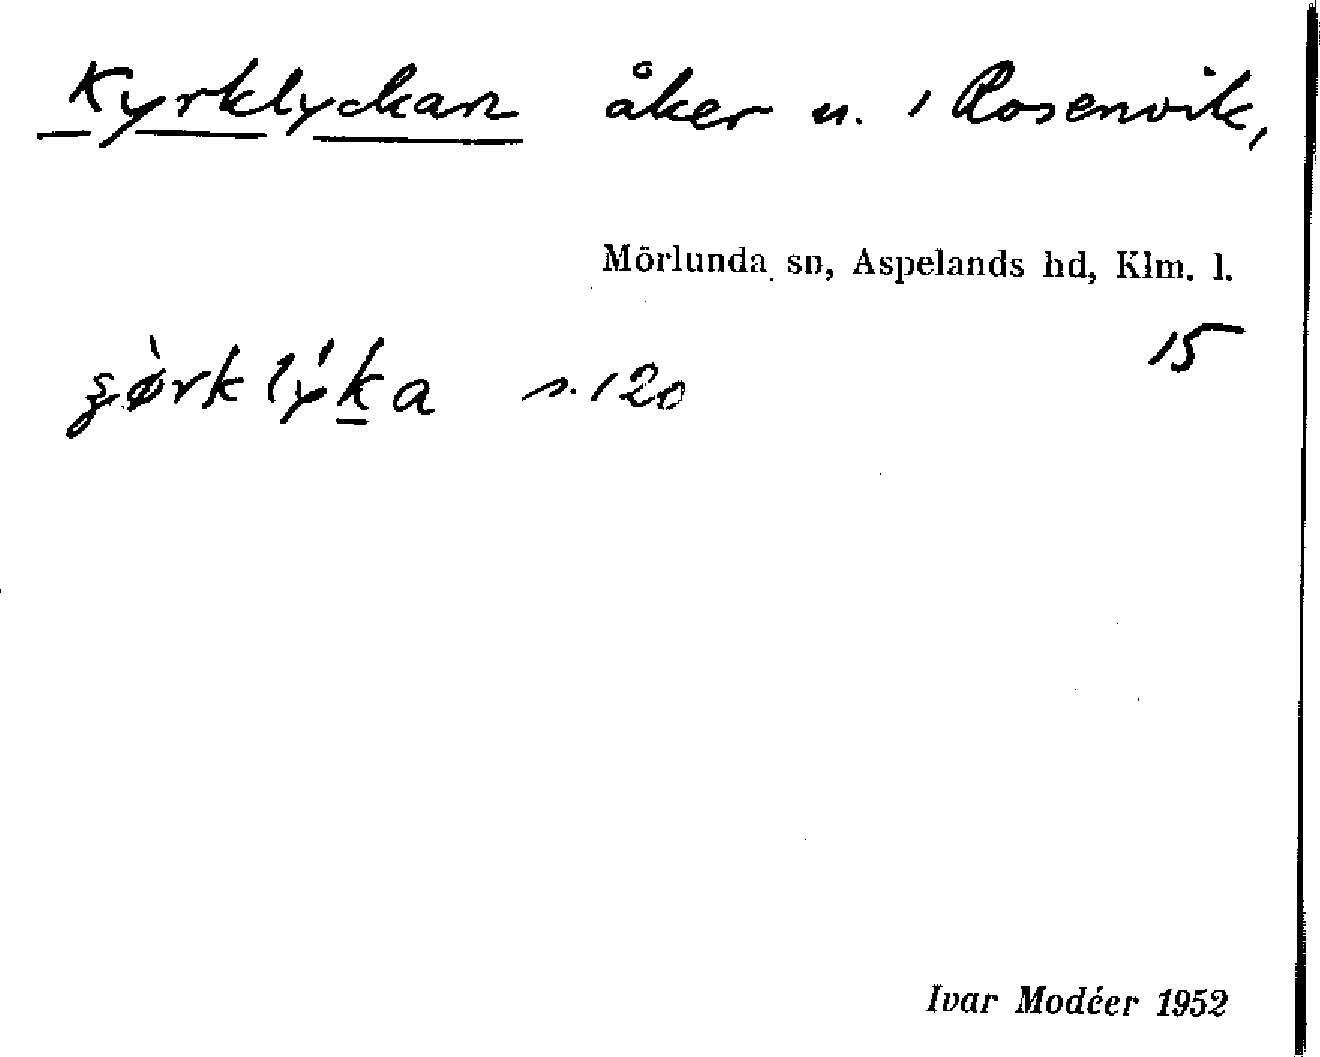 Kyrklyckan åker n. i Rosenvik,
Mörlunda sn, Aspelands hd, Klm. l.
15
s. 120
Ivar Modéer 1952